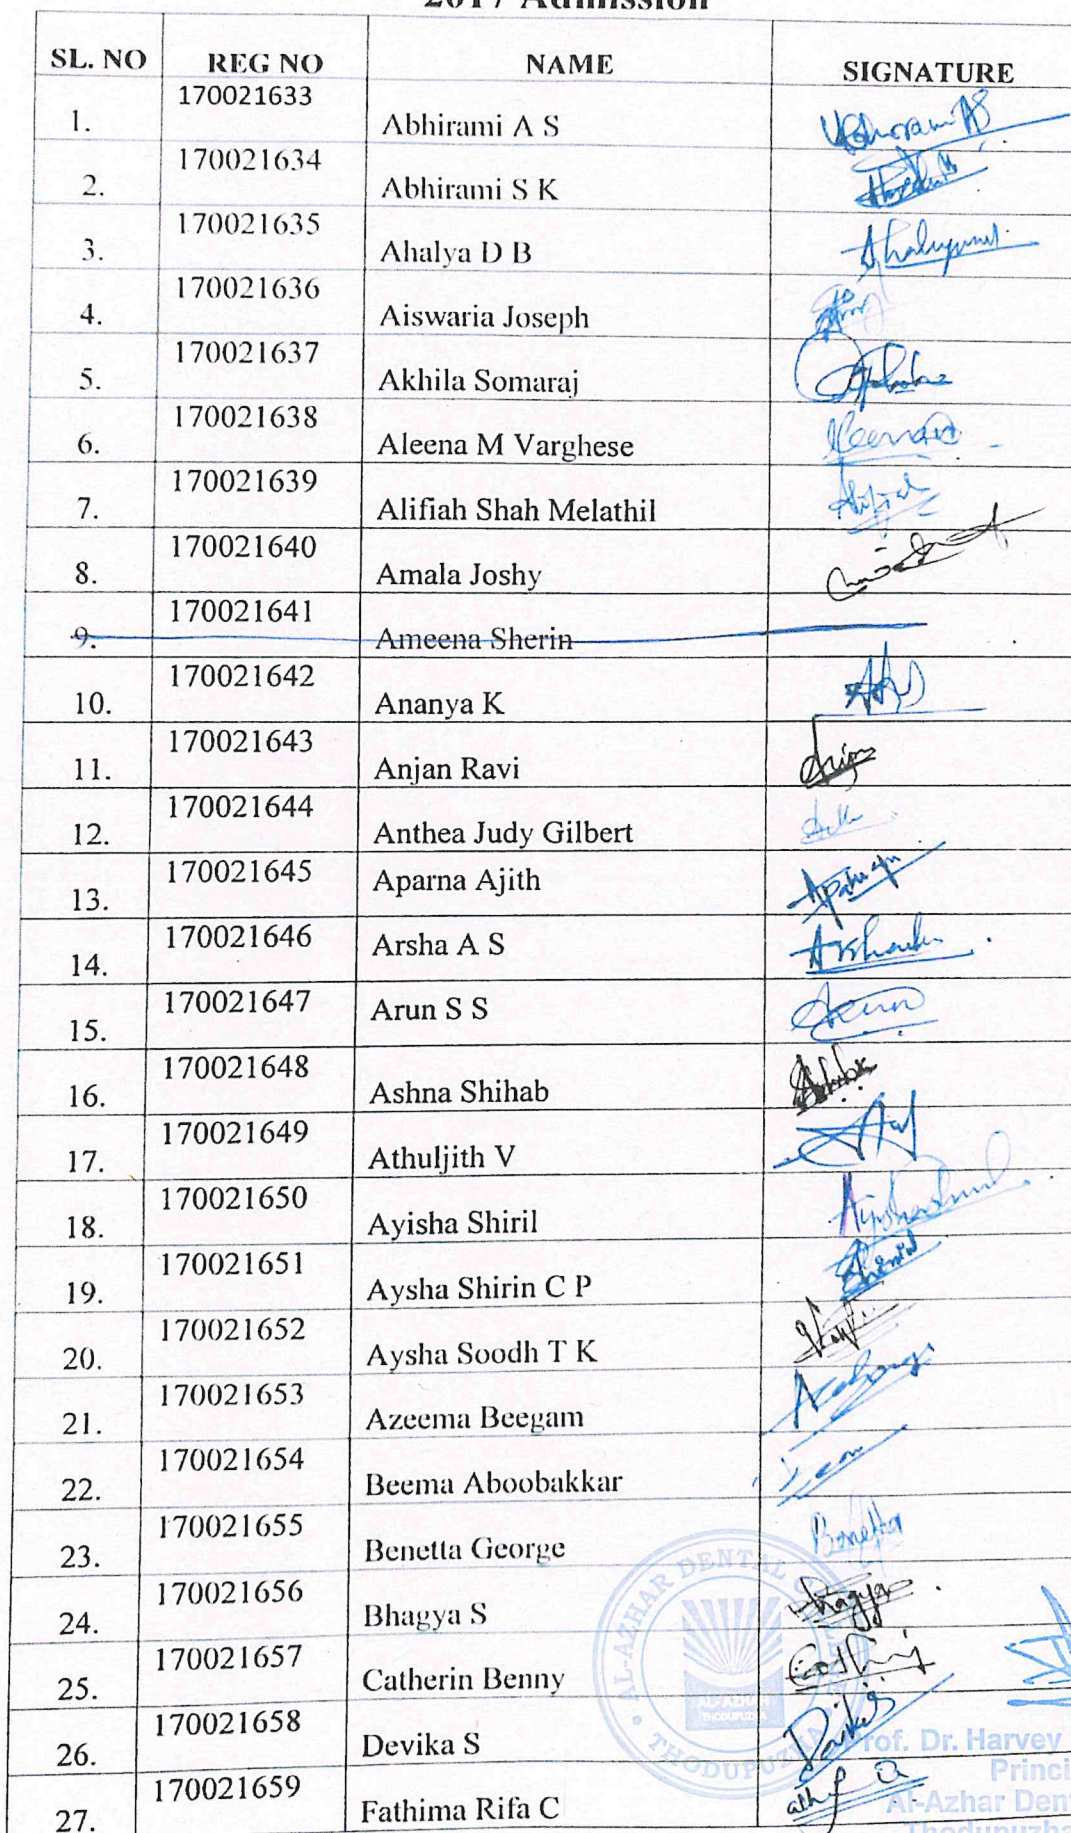 2017 Admission
SL. NO REG NO NAME SIGNATURE
1. 170021633 Abhirami A S
2. 170021634 Abhirami S K
3. 170021635 Ahalya D B
4. 170021636 Aiswaria Joseph
5. 170021637 Akhila Somaraj
6. 170021638 Aleena M Varghese
7. 170021639 Alifiah Shah Melathil
8. 170021640 Amala Joshy
9. 170021641 Ameena Sherin
10. 170021642 Ananya K
11. 170021643 Anjan Ravi
12. 170021644 Anthea Judy Gilbert
13. 170021645 Aparna Ajith
14. 170021646 Arsha A S
15. 170021647 Arun S S
16. 170021648 Ashna Shihab
17. 170021649 Athuljith V
18. 170021650 Ayisha Shiril
19. 170021651 Aysha Shirin C P
20. 170021652 Aysha Soodh T K
21. 170021653 Azeema Beegam
22. 170021654 Beema Aboobakkar
23. 170021655 Benetta George Benetta
24. 170021656 Bhagya S Bhagya
25. 170021657 Catherin Benny
26. 170021658 Devika S
27. 170021659 Fathima Rifa C
AL-AZHAR DENTAL
AL-AZHAR
THODUPUZHA
THODUPUZHA
Prof. Dr. Harvey
Princi
Al-Azhar Den
Thodupuzha